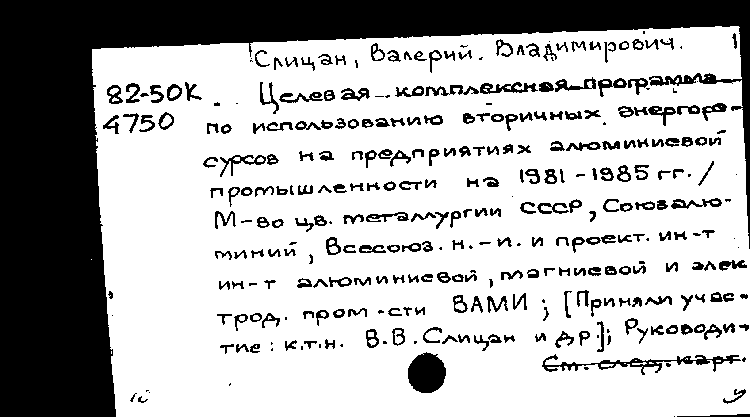 Слицан, Валерий. Владимирович.
82-50К . Целевая комплексная программа
4750 по использованию вторичных энергоре-
сурсов на предприятиях алюминиевой
промышленности на 1981-1985 гг. /
М-во цв. металлургии СССР, Союзалю-
миний, Всесоюз. н.-и. и проект. ин-т
ин-т алюминиевой, магниевой и элек
трод. пром-сти ВАМИ; [Приняли учас-
тие: к.т.н. В.В. Слицан и др.]; Руководи-
См. след. карт.